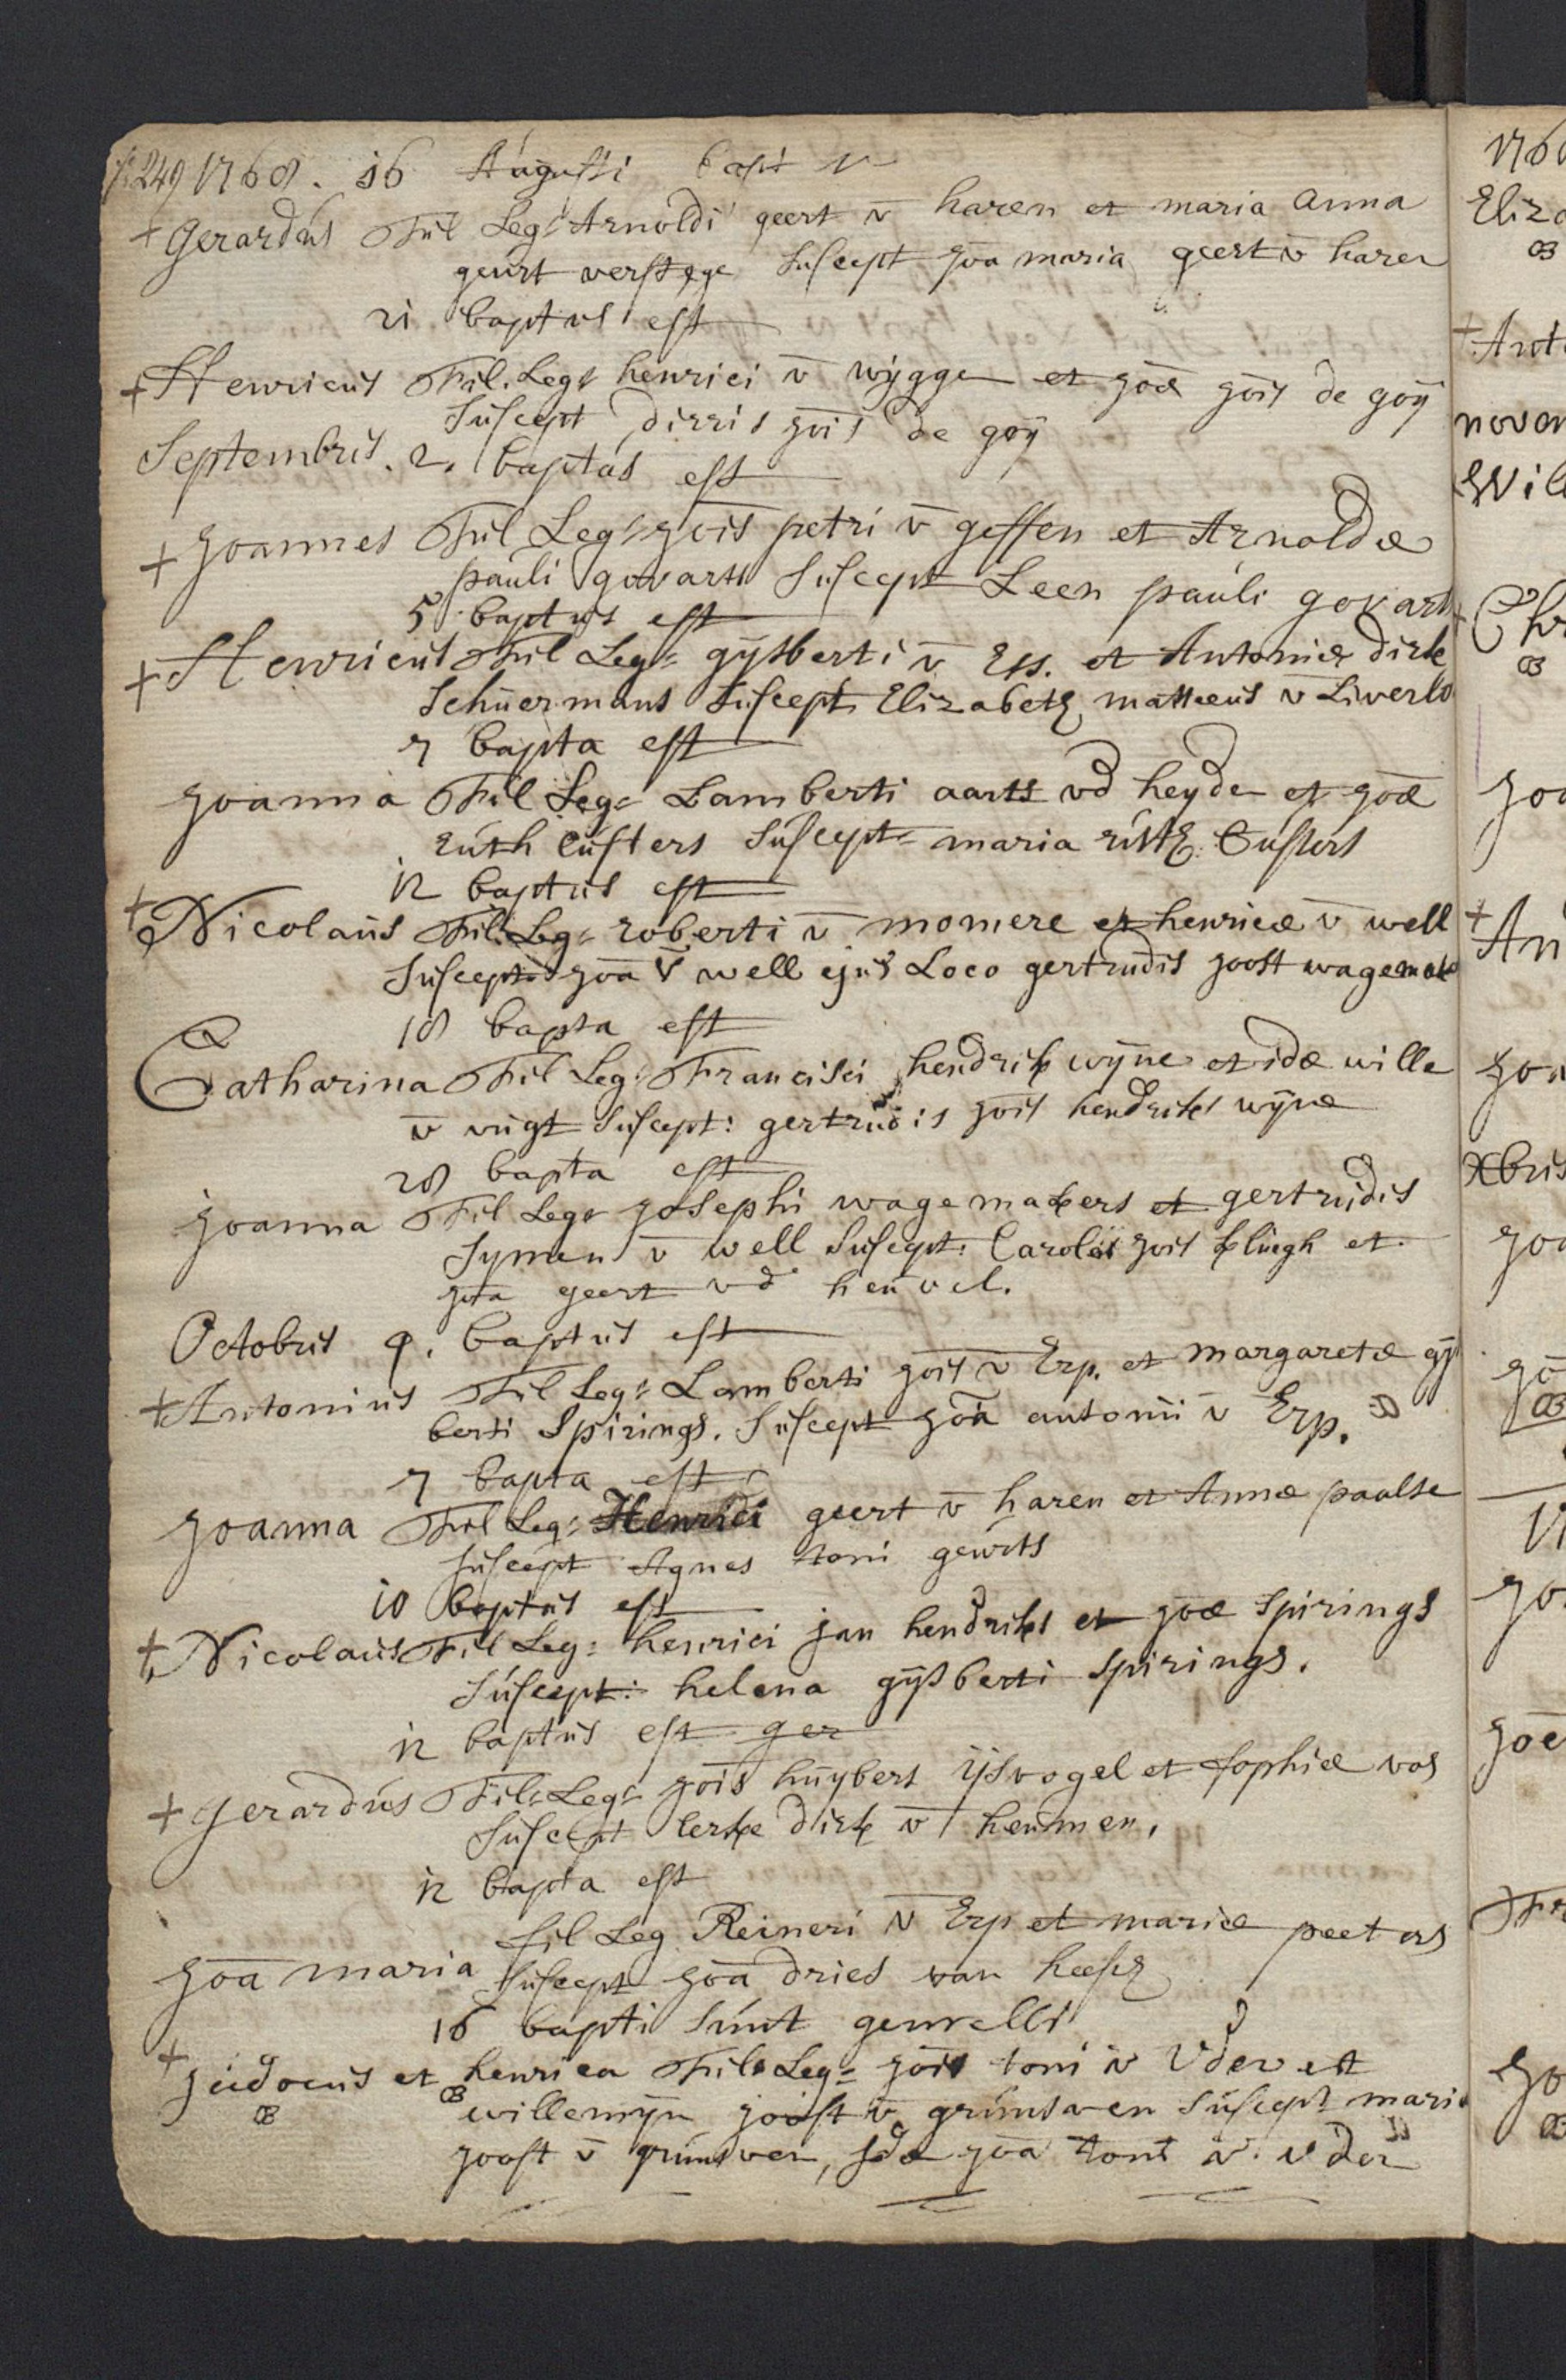 249 1768. 16 Augusti bapt
+ Gerardus Fil Leg: Arnoldi geert v̄ haren et maria Anna
geurt verstege suscept Jōa maria geert v̄ haren
21 baptus est
+ Henricus Fil. Leg: henrici v̄ wijgge et Jōæ Jōis de goij
suscept dirris Jōis de goij
Septembris. 2. baptus est
+ Joannes Fil Leg: Jōis petri v̄ geffen et Arnoldæ
pauli govarts suscept Leen pauli govarts
5 baptus est
+ Henricus Fil Leg: gijsberti v̄ Ess. et Antoniæ dirk
schuermans suscept Elizabeth matteeus v̄ Liverlo
7 bapta est
Joanna Fil Leg: Lamberti aarts vd heyde et Jōæ
Ruth Custers suscept: maria rutth. Custers
12 baptus est
+ Nicolaus Fil. Leg: roberti v̄ momere et henricæ v̄ well
suscept: Jōa v̄ well ejus Loco gertrudis joost wagemake
18 bapta est
Catharina Fil Leg: Francisci hendrik wijne et idæ wille
v̄ vugt suscept: gertrudis Jōis hendriks wijne
28 bapta est
Joanna Fil Leg: Josephi wagemakers et gertrudis
Symen v̄ well suscept: Carolus Jois klingh et
Jōa geert vd heuvel.
Octobris 4. baptus est
+ Antonius Fil Leg: Lamberti Jōis v̄ Erp. et margaretæ gijs
berti Spirings. suscept Jōa antonii v̄ Erp.
7 bapta est
Joanna Fil Leg: Henrici geert v̄ haren et Annæ paulse
suscept Agnes toni geurts
10 baptus est
+ Nicolaus Fil Leg: henrici jan hendriks et Jōæ Spirings
suscept: helena gijsberti Spirings.
12 baptus est ger
+ Gerardus Fil: Leg: Jōis huybers ijsvogel et sophiæ vos
suscept lerke dirk v̄ heumen.
12 bapta est
Jōa maria fil Leg Reineri v̄ Erp et mariæ peeters
suscept Jōa dries van heesch
16 bapti sunt gemelli
+ Judocus et henrica Fil: Leg: Jōis toni v̄ Uden et
willemijn joost v̄ grunsven suscept maria
joost v̄ grunsven, Jda Jōa toni v̄. uden